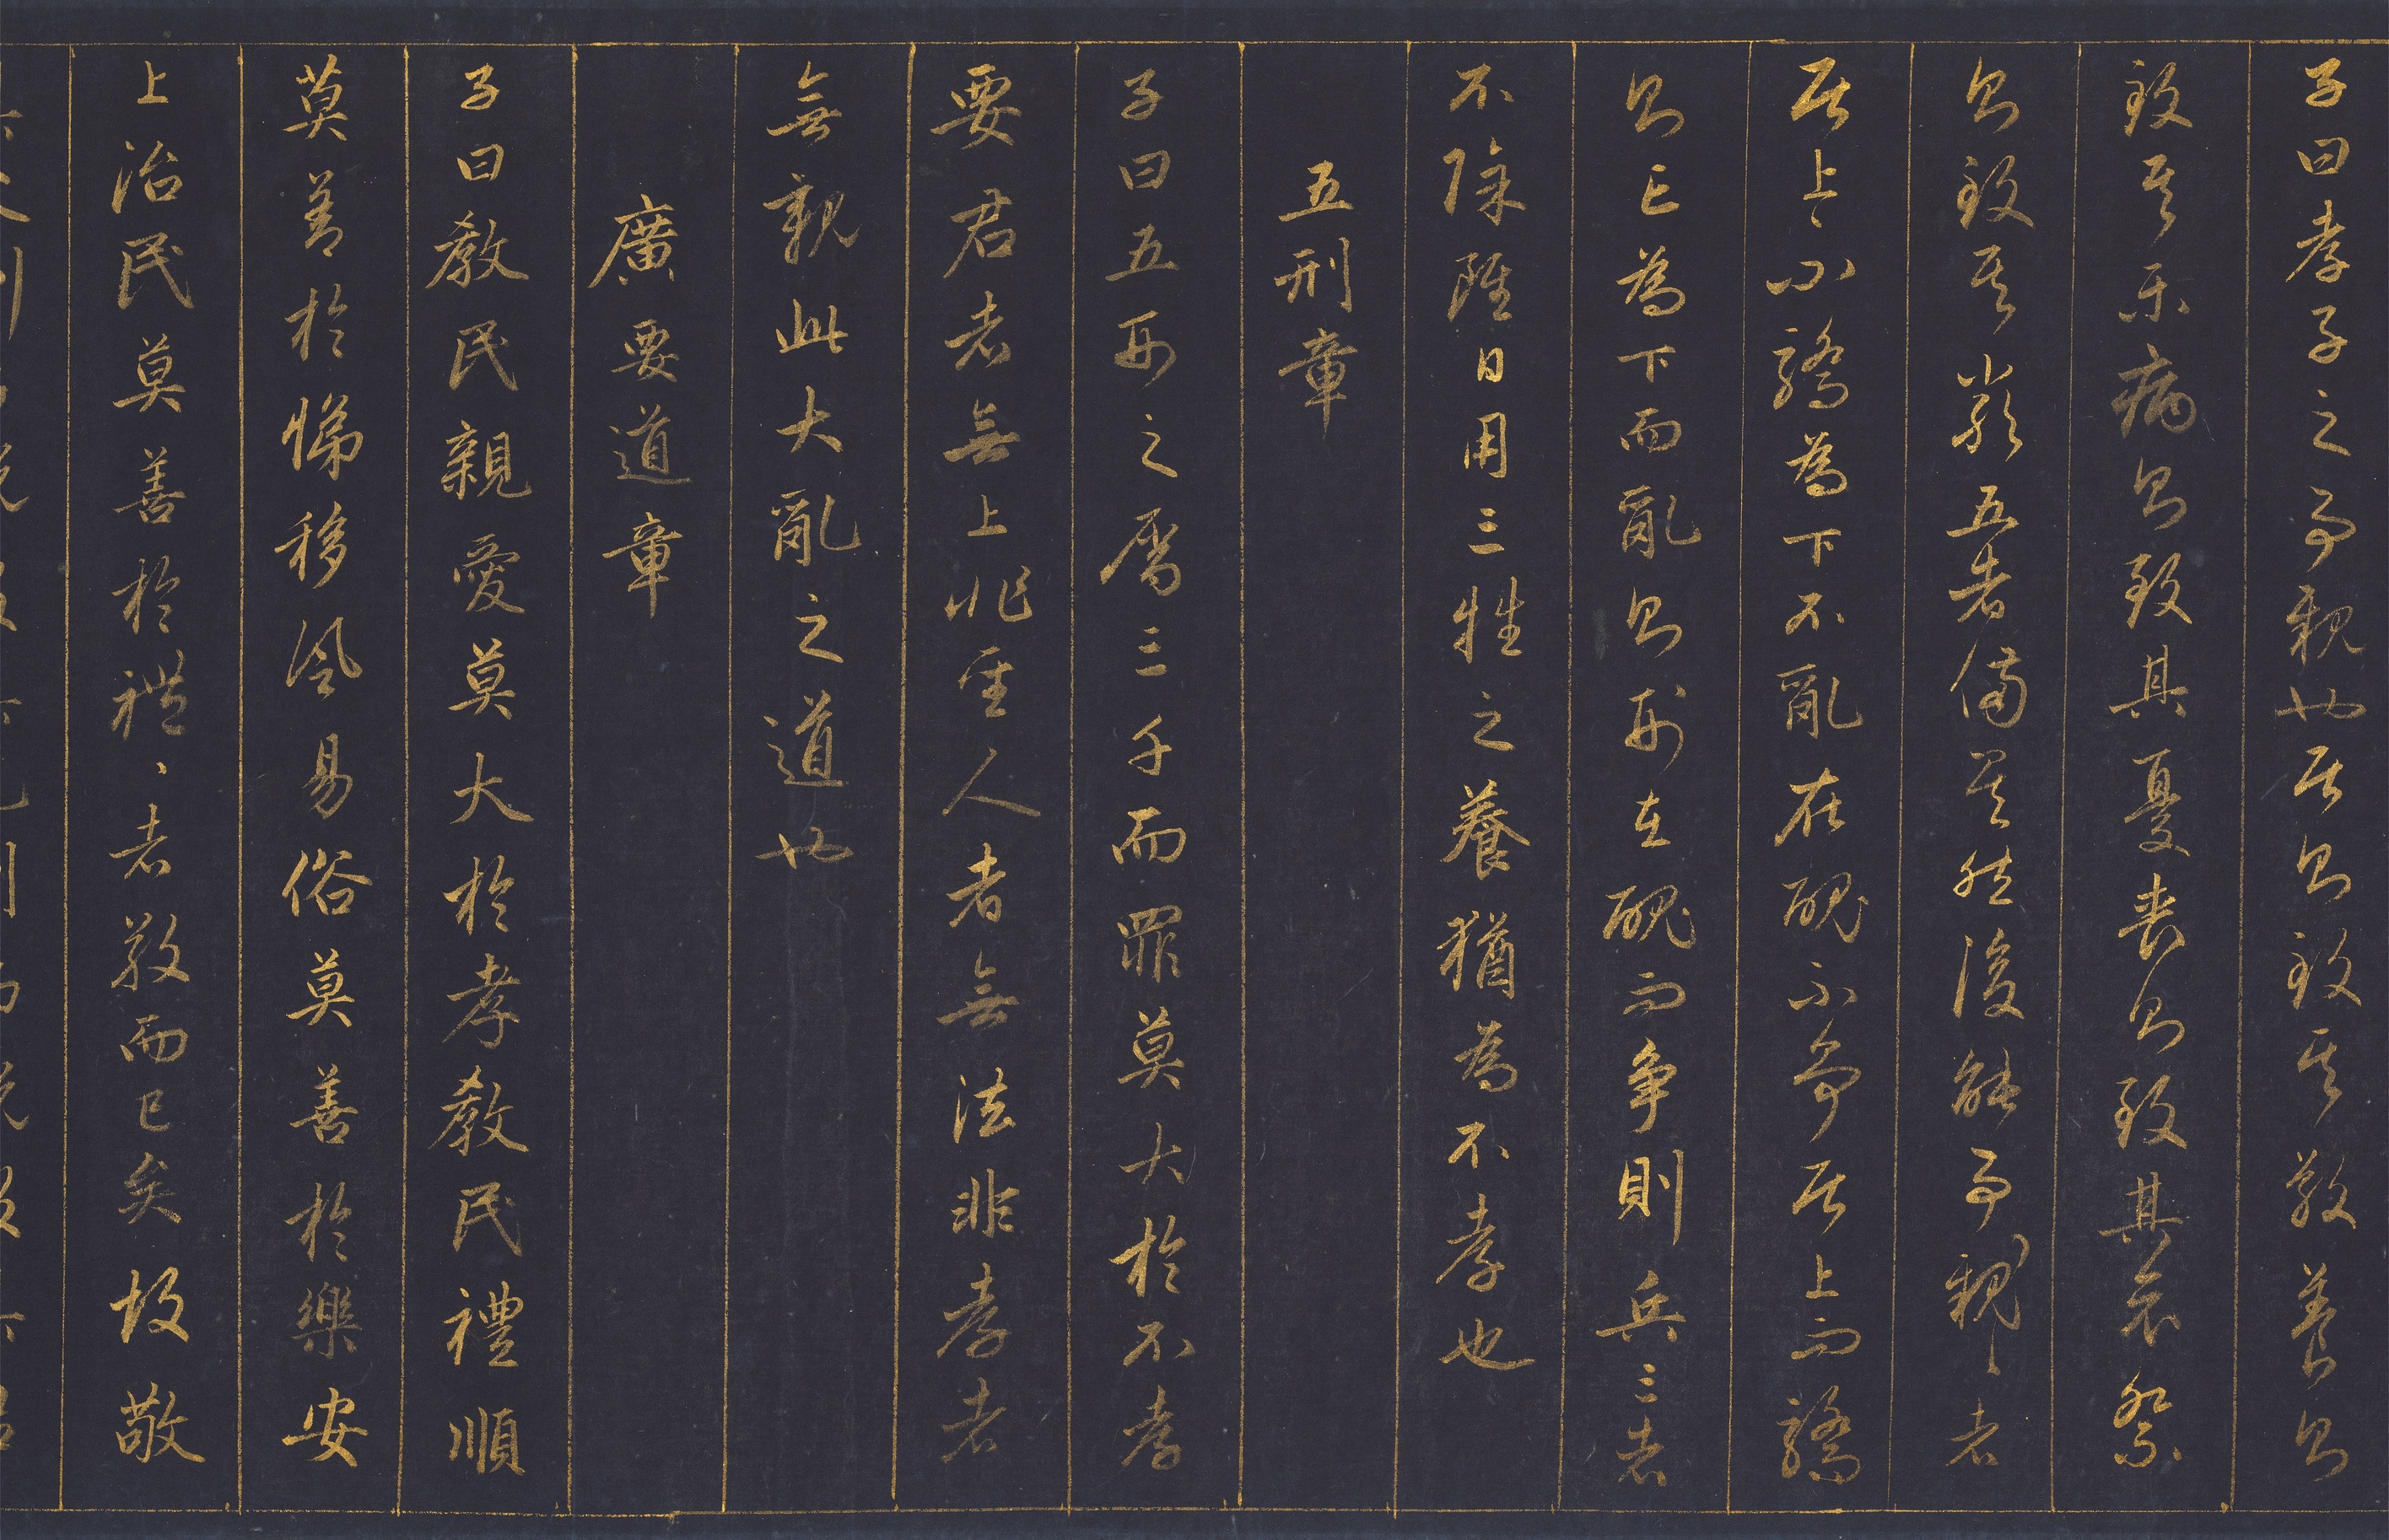 子曰孝子之事親也居則致其敬養則
致其樂病則致其憂喪則致其哀祭
則致其嚴五者備矣然後能事親〻者
居上〻不驕為下不亂在醜不爭居上而驕
則亡為下而亂則刑在醜而爭則兵三者
不除雖日用三牲之養猶為不孝也
五刑章
子曰五刑之屬三千而罪莫大於不孝
要君者無上非聖人者無法非孝者
無親此大亂之道也
廣要道章
子曰教民親愛莫大於孝教民禮順
莫善於悌移風易俗莫善於樂安
上治民莫善於禮〻者敬而已矣故敬